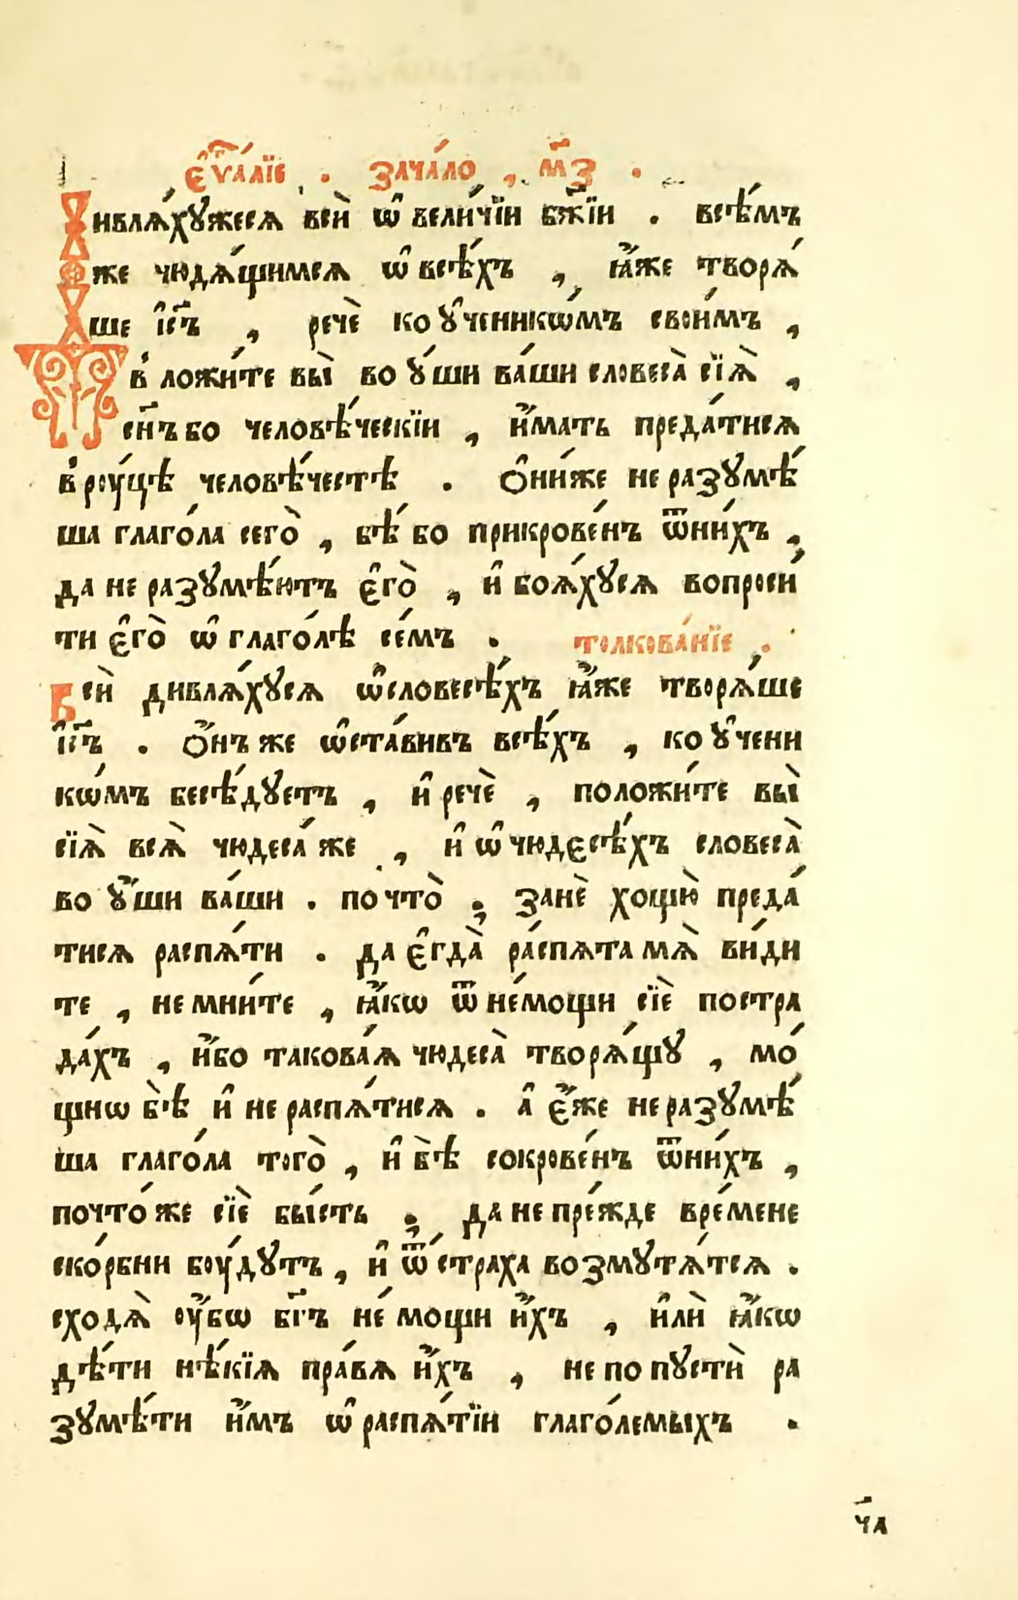 є҆ѵⷢ҇аліе . зача́ло , м҃з .
Дивлѧ́хꙋжесѧ всѝ ѡ҆ вели́чїи бж҃їи . всѣ́мъ
же чюдѧ́щимсѧ ѡ҆ всѣ́хъ , ꙗ҆̀же творѧ́
ше і҆с҃ъ , речѐ ко ᲂу҆ченикѡ́мъ свои́мъ ,
вложи́те вы̀ во ᲂу҆́ши ва́ши словеса̀ сїѧ̀ ,
сн҃ъ бо человѣ́ческїи , и҆́мать преда́тисѧ
врꙋ́цѣ человѣ́честѣ . Ѻ҆ни́же не разꙋмѣ́
ша глаго́ла сего̀ , бѣ́ бо прикрове́нъ ѿни́хъ ,
да не разꙋмѣ́ютъ є҆го̀ , и҆ боѧ́хꙋсѧ вопроси́
ти є҆го̀ ѡ҆ глаго́лѣ се́мъ . толкова́нїе .
Всѝ дивлѧ́хꙋсѧ ѡ҆словесѣ́хъ ꙗ҆̀же творѧ́ше
і҆с҃ъ . Ѻ҆́нъ же ѡ҆ста́вивъ всѣ́хъ , ко ᲂу҆чени
кѡ́мъ бесѣ́дꙋетъ , и҆ речѐ , положи́те вы̀
сїѧ̀ всѧ̀ чюдеса́ же , и҆ ѡ҆ чюдєсѣ́хъ словеса̀
во ᲂу҆́ши ва́ши . по что̀ ; занѐ хощю̀ преда́
тисѧ распѧ́ти . да є҆гда̀ ра́спѧта мѧ̀ ви́ди
те , не мни́те , ꙗ҆́кѡ ѿ не́мощи сїѐ постра
да́хъ , и҆́бо такова́ѧ чюдеса̀ творѧ́щꙋ , мо́
щнѡ бѣ̀ и҆ не распѧ́тисѧ . а҆ є҆́же не разꙋмѣ́
ша глаго́ла того̀ , и҆ бѣ̀ сокрове́нъ ѿни́хъ ,
почто́ же сїѐ бы́сть ; да не пре́жде вре́мене
ско́рбни бꙋ́дꙋтъ , и҆ ѿ стра́ха возмꙋтѧ́тсѧ .
сходѧ̀ ᲂу҆́бѡ бг҃ъ не́мощи и҆́хъ , и҆лѝ ꙗ҆́кѡ
дѣ́ти нѣ́кїѧ пра́вѧ и҆́хъ , не попꙋстѝ ра
зꙋмѣ́ти и҆́мъ ѡ҆ распѧ́тїи глаго́лемыхъ .
ч҃а